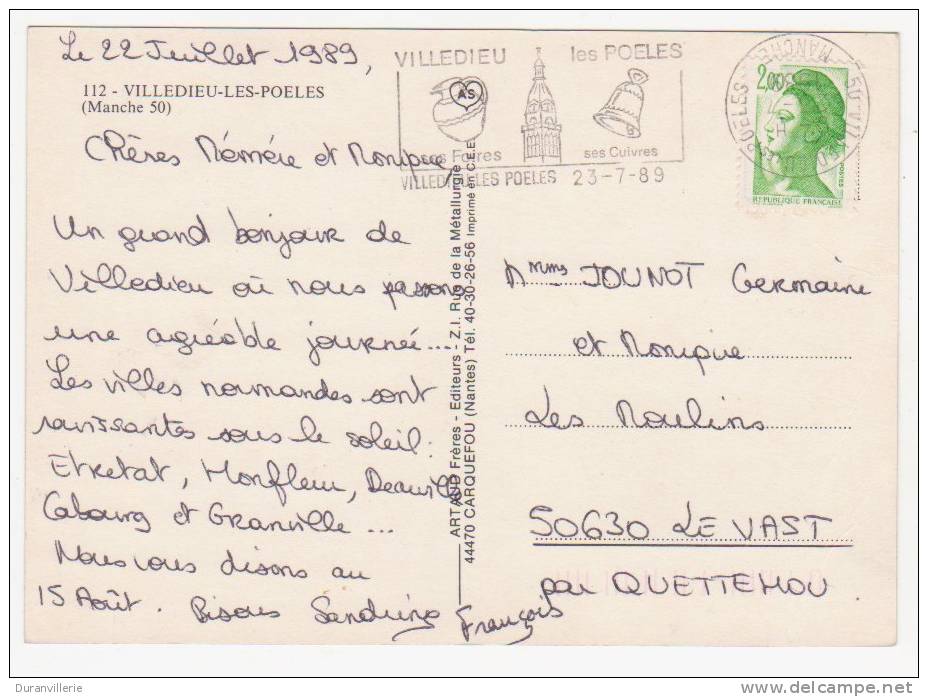 Le 22 Juillet 1989,
112 - VILLEDIEU-LES-POELES
(Manche 50)
Chères Mémère et Monique,
Un grand bonjour de
Villedieu où nous passons
une agréable journée...
Les villes normandes sont
ravissantes sous le soleil:
Etretat, Honfleur, Deauville
Cabourg et Granville ...
Nous vous disons au
15 Août. Bisous Sandrine
François
VILLEDIEU les POELES
AS
ses Foires ses Cuivres
VILLEDIEU LES POELES 23-7-89
MANCHE
2,00
POSTES
REPUBLIQUE FRANÇAISE
ARTAUD Frères - Editeurs - Z.I. Rue de la Métallurgie
44470 CARQUEFOU (Nantes) Tél. 40-30-26-56 Imprimé en C.E.E.
Mmes JOUNOT Germaine
et Monique
Les Moulins
50630 LE VAST
par QUETTEHOU
Duranvillerie
delcampe.net